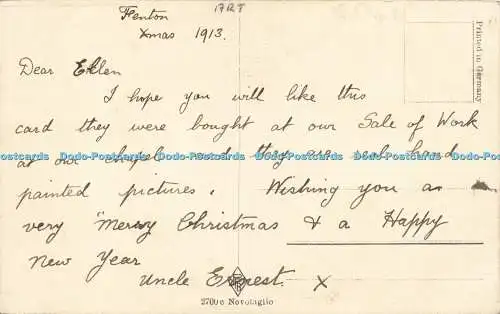 Fenton
17127
Xmas 1913.
Printed in Germany
Dear Ellen
I hope you will like this
card they were bought at our Sale of Work
at our chapel and they are real hand
Dodo-Postcards Dodo-Postcards Dodo-Postcards Dodo-Postcards
painted pictures. Wishing you a
very "Merry Christmas & a Happy
New Year
Uncle Ernest. X
2700e Novotaglio